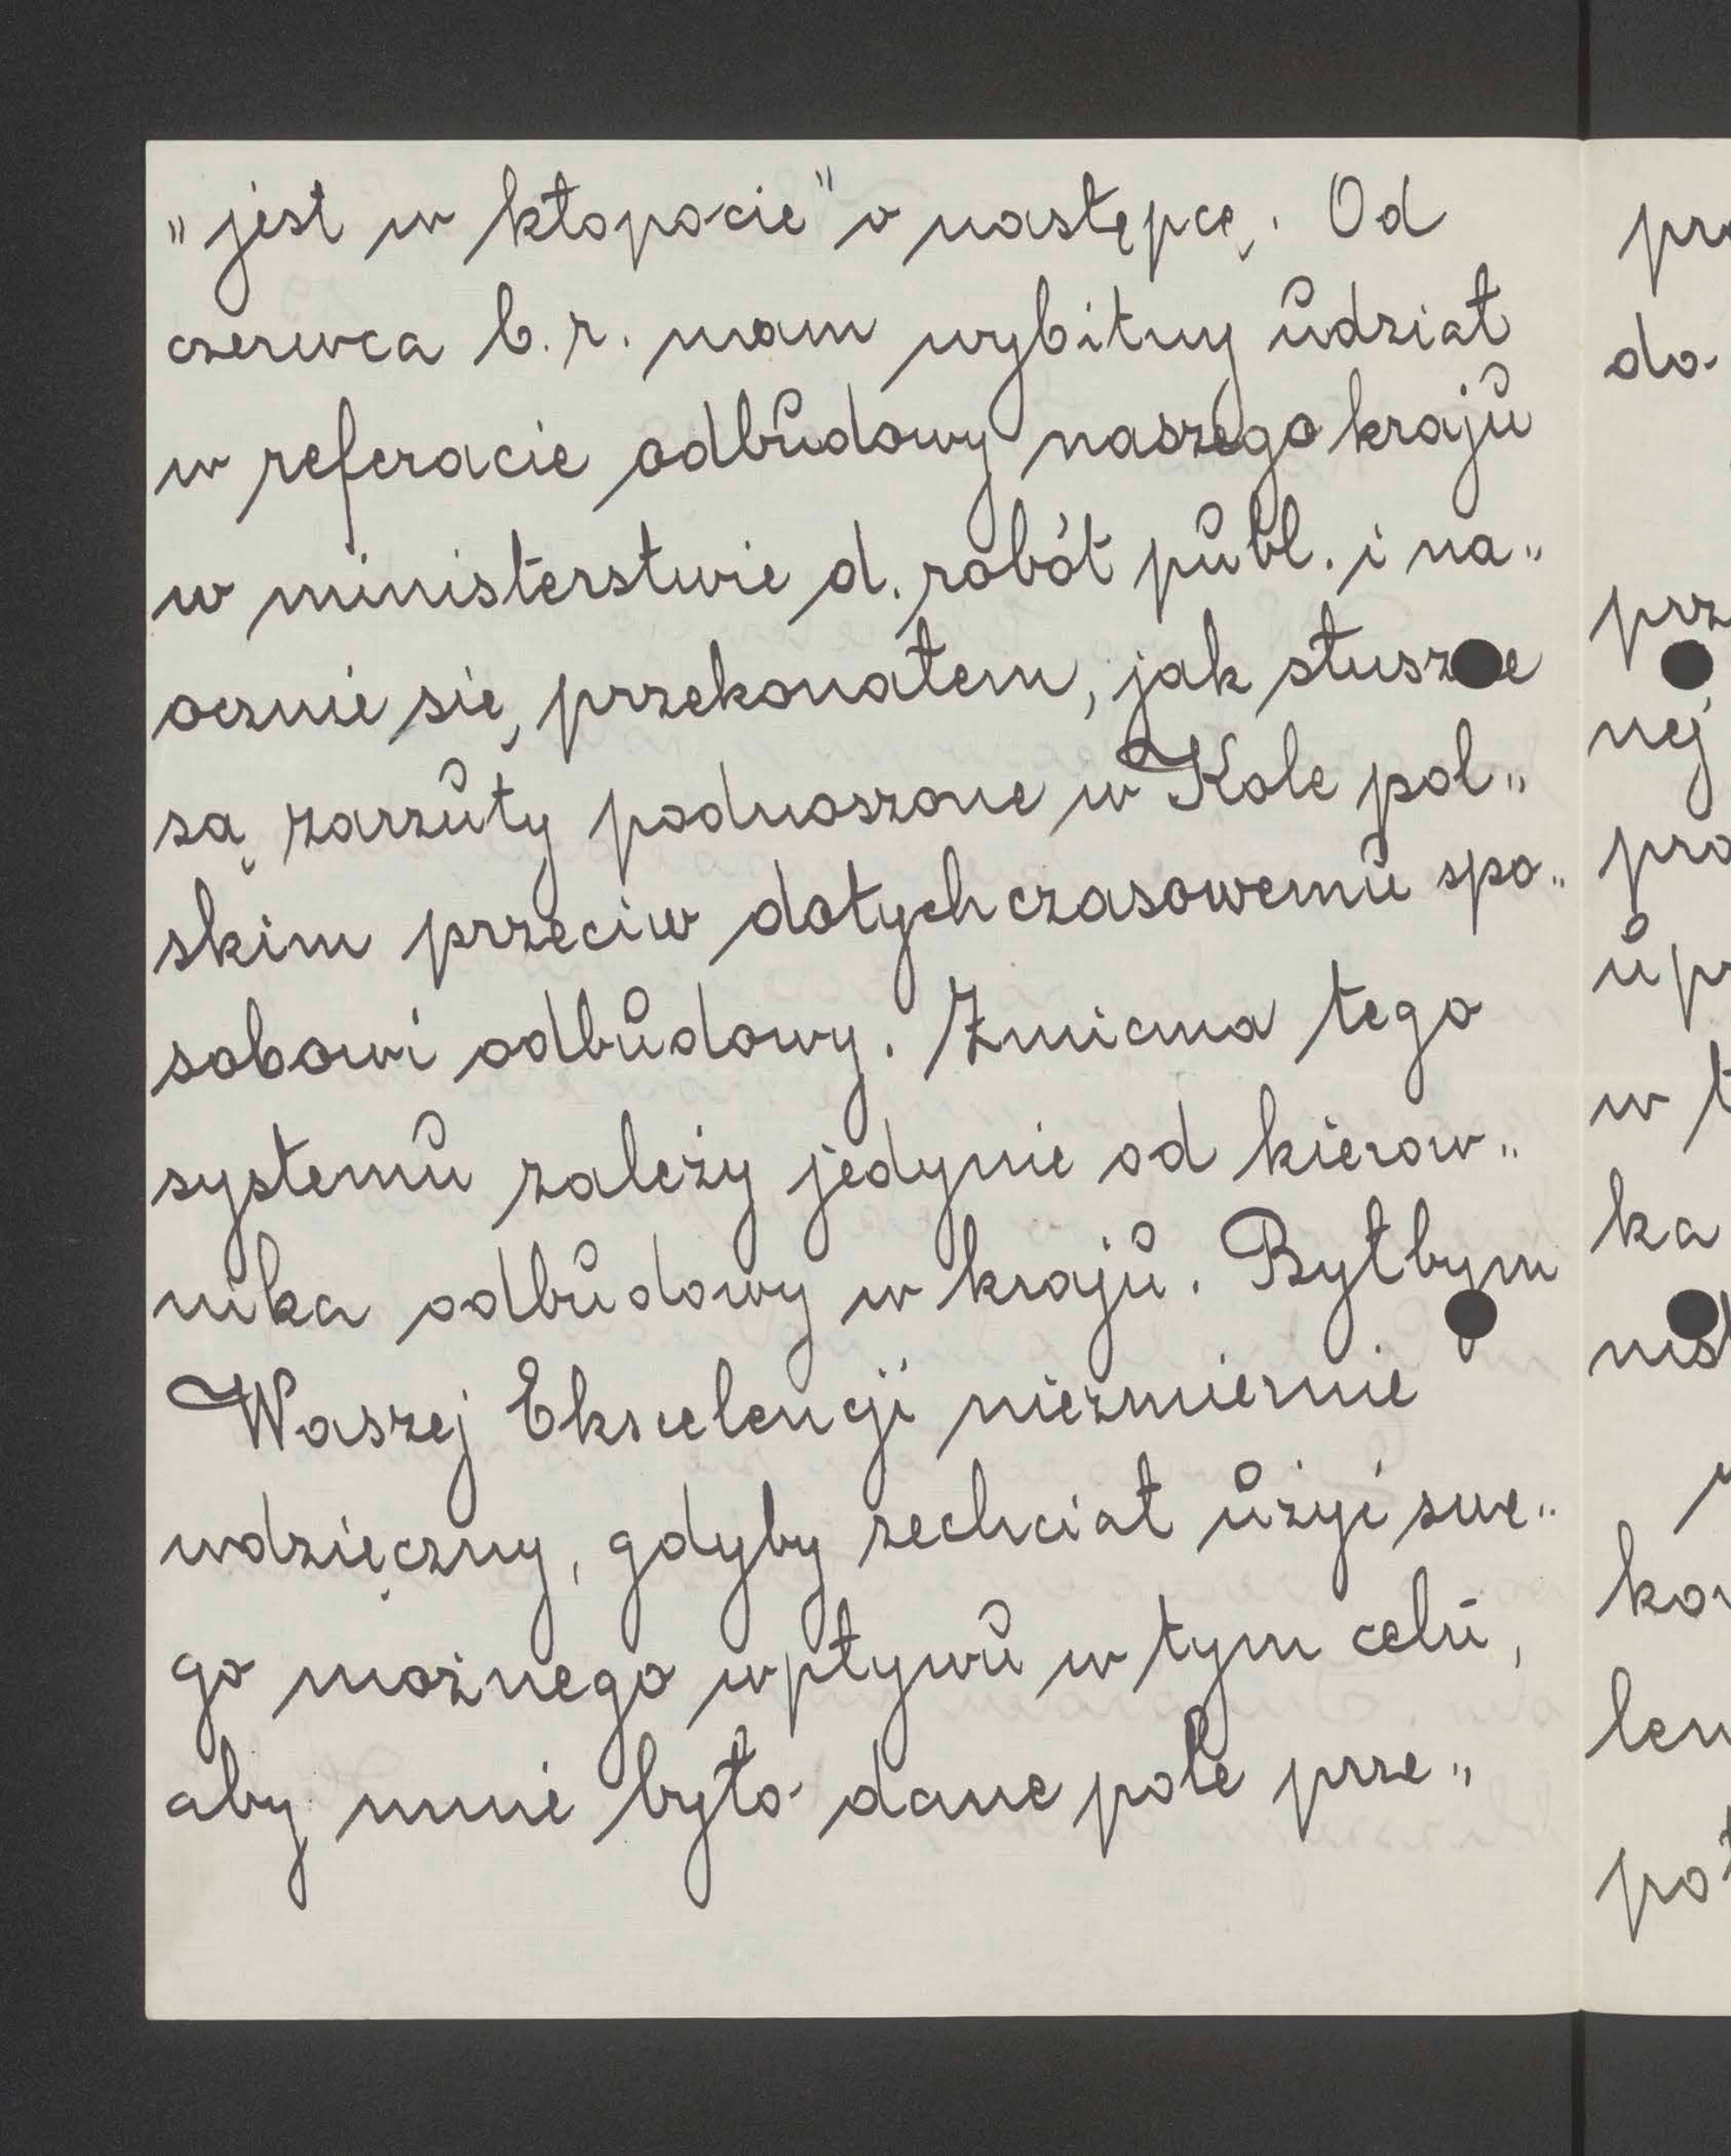 „jest w kłopocie" o następcę. Od
czerwca b.r. mam wybitny udział
w referacie odbudowy naszego kraju
w ministerstwie d. robót publ. i na„
ocznie się przekonałem, jak słuszne
są zarzuty podnoszone w Kole pol„
skim przeciw dotychczasowemu spo„
sobowi odbudowy. Zmiana tego
systemu zależy jedynie od kierow„
nika odbudowy w kraju. Byłbym
Waszej Ekscelencji niezmiernie
wdzięczny, gdyby zechciał użyć swe„
go możnego wpływu w tym celu,
aby mnie było dane pole prze„